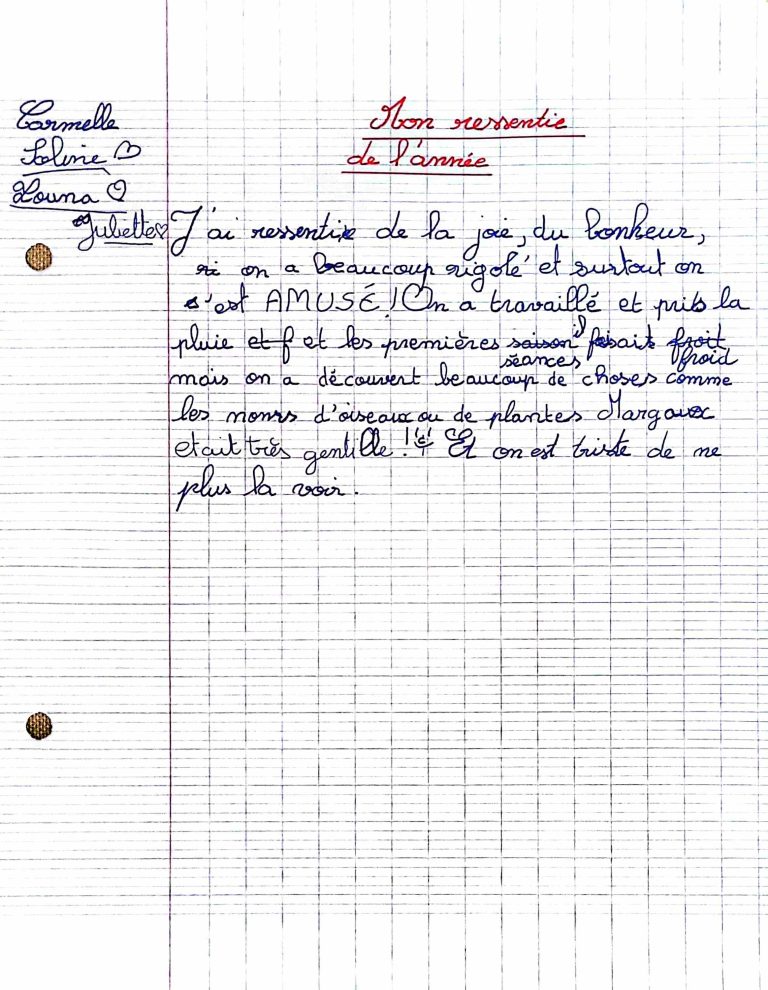 Carmelle
Soline ♡
Louna ♡
Juliette ♡
Mon ressentie
de l'année
J'ai ressentie de la joie, du bonheur,
on a beaucoup rigolé et surtout on
s'est AMUSÉ ! On a travaillé et pris la
pluie et f et les premières saison séances il faisait froit froid
mais on a découvert beaucoup de choses comme
les noms d'oiseaux ou de plantes Margaux
etait très gentille ! Et on est triste de ne
plus la voir.